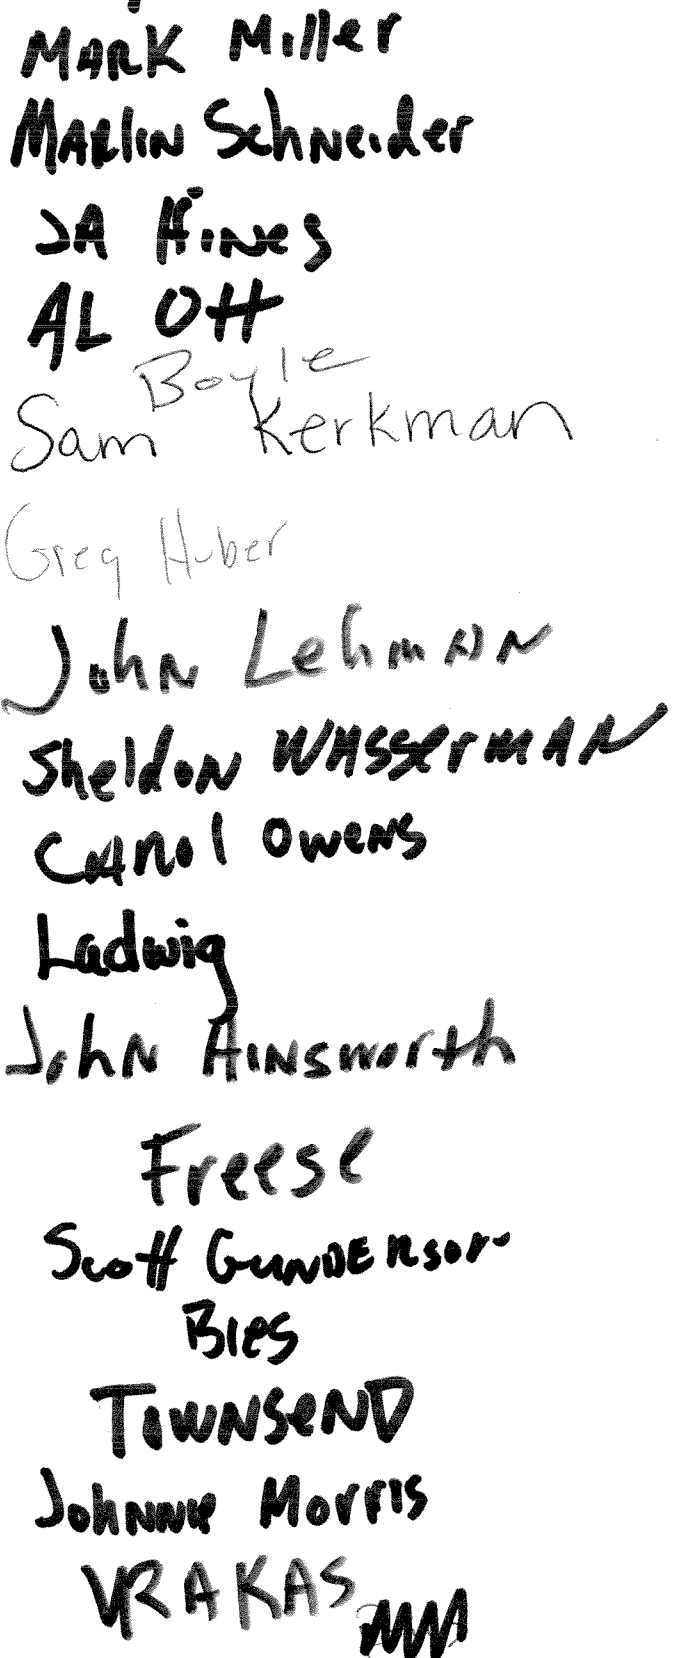 MARK Miller
MARlIN Schneider
JA HiNes
AL Ott
Boyle
Sam Kerkman
Greg Huber
JohN LehmAN
SheldoN WASSerMAN
CARol OweNS
Ladwig
JohN AINSworth
Freese
Scott GUNDERSoN
Bies
ToWNSeND
JohNNie MorrIS
VRAKAS